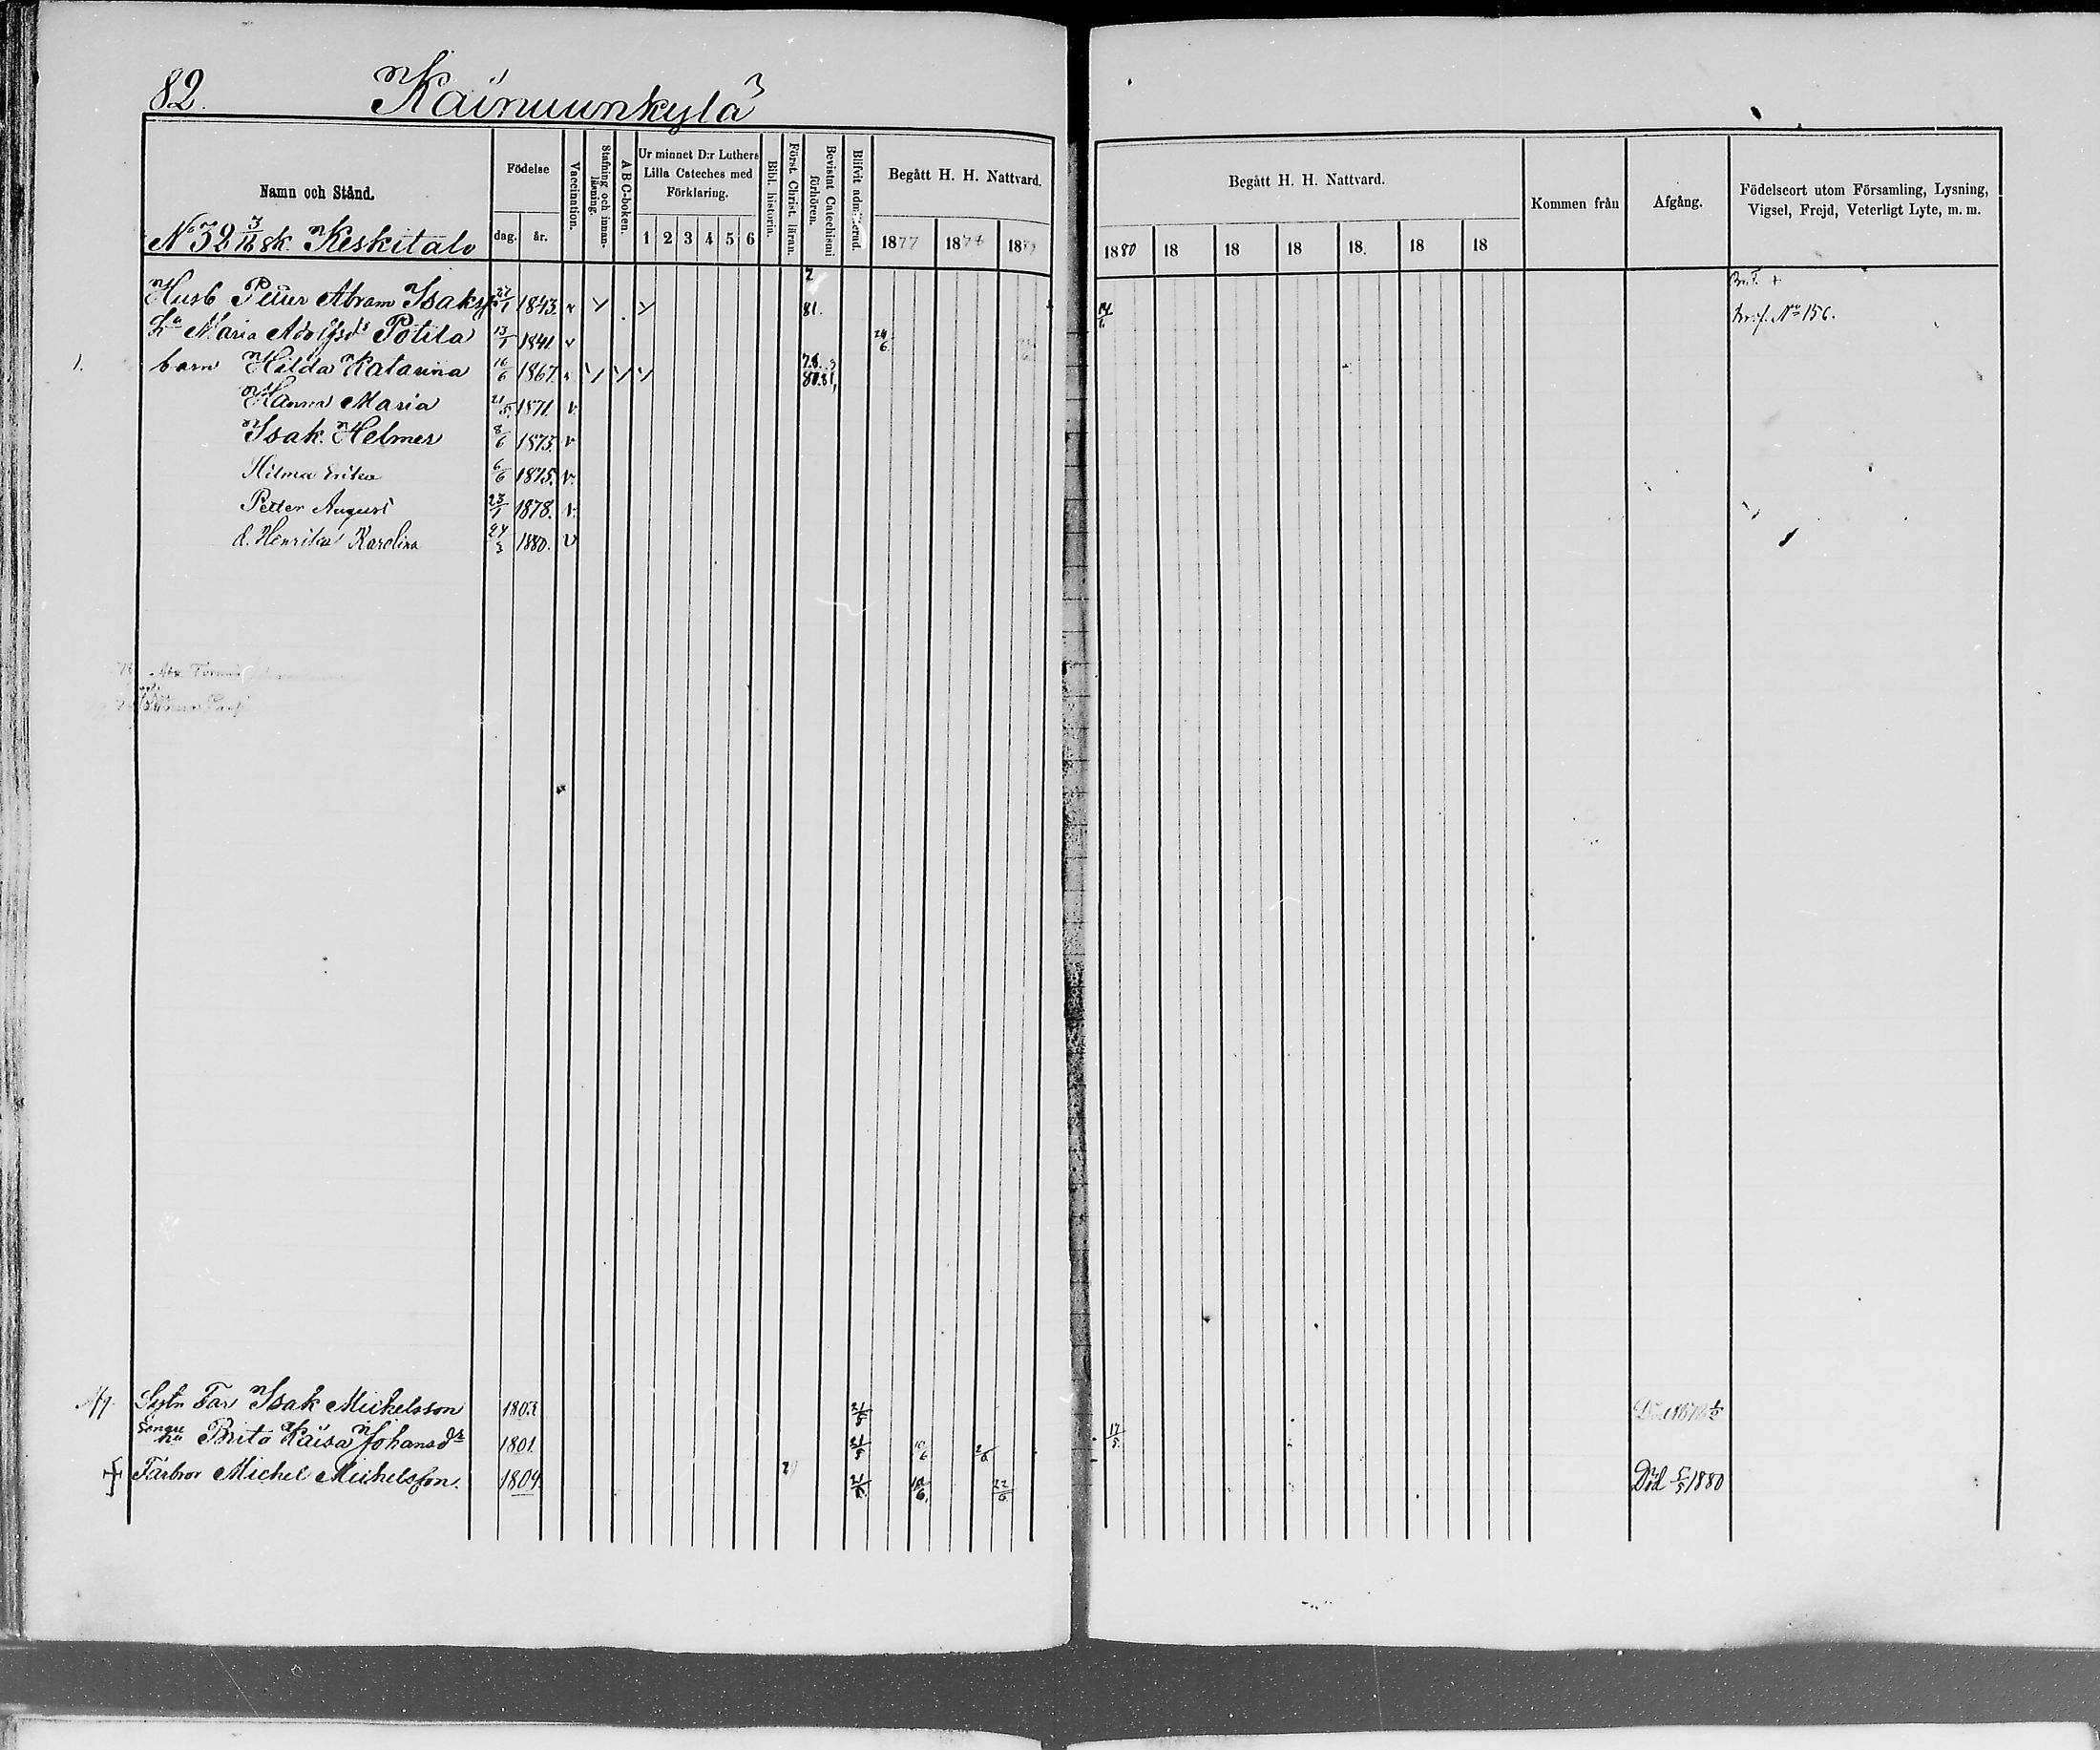 82. Kainuunkylä
Namn och Stånd.
Födelse
dag. år.
Vaccination.
Stafning och innan-läsning.
A B C-boken.
Ur minnet D:r Luthers Lilla Cateches med Förklaring.
1 2 3 4 5 6
Bibl. historia.
Först. Christ. läran.
Bevistat Catechismi förhören.
Blifvit admitterad.
Begått H. H. Nattvard.
1877 187 18
Begått H. H. Nattvard.
1880 18 18 18 18. 18 18
Kommen från
Afgång.
Födelseort utom Församling, Lysning,
Vigsel, Frejd, Veterligt Lyte, m. m.
No 32 3/16 sk. Keskitalo
Husb Petter Abram Isaks 27/1 1843. v 81. 14/6 No 156.
Hu Maria Adolfsd Potila 13/1 1841 v 24/6
1. barn Hilda Katarina 16/6 1867. v 78. 80.81,
Hanna Maria 21/5 1871. v.
Isak Helmer 8/6 1873. v
Hilma Erika 6/6 1875. v.
Petter August 23/1 1878. v.
d. Henrika Karolina 24/3 1880. v
Sytn Far Isak Mickelsson 1803 21/5 Död
hu Brita Kaisa Johansdr 1801. 21/5 10/6 17/5.
Farbror Michel Michelsson. 1804. 21/5 10/6. 22/6. Död 5/5 1880